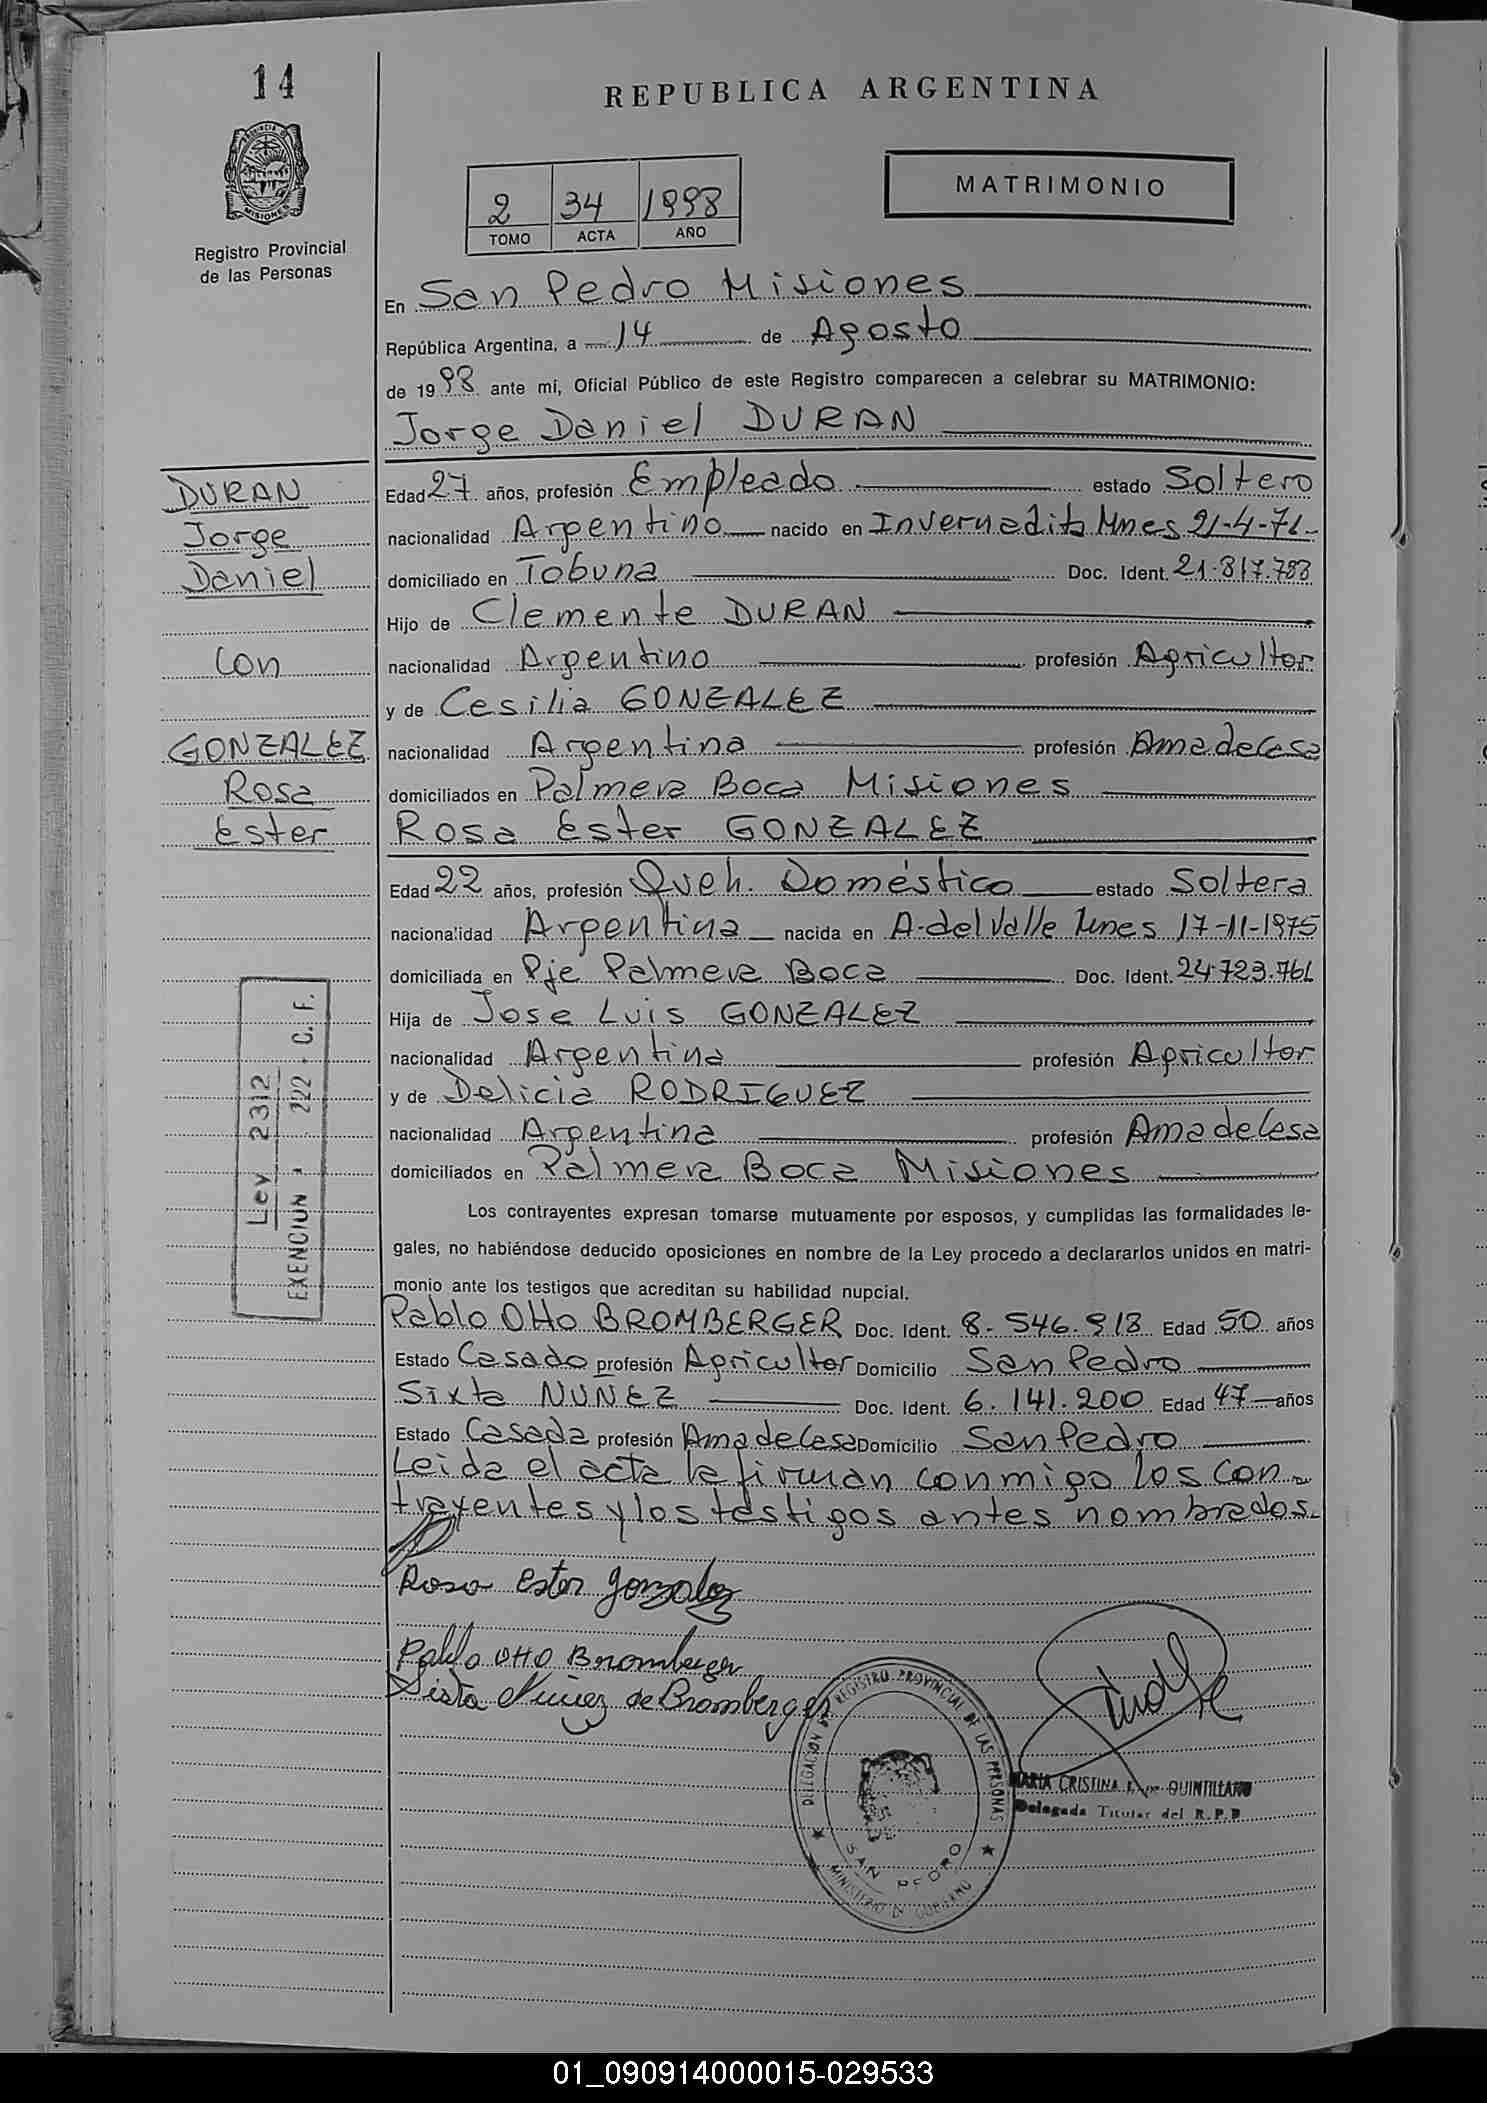 14
REPUBLICA ARGENTINA
PROVINCIA D
MISIONES
Registro Provincial
de las Personas
MATRIMONIO
2 34 1998
TOMO ACTA AÑO
En San Pedro Misiones
República Argentina, a 14 de Agosto
de 1998 ante mí, Oficial Público de este Registro comparecen a celebrar su MATRIMONIO:
Jorge Daniel DURAN
DURAN
Jorge
Daniel
con
GONZALEZ
Rosa
Ester
Edad 27 años, profesión Empleado estado Soltero
nacionalidad Argentino nacido en Invernadita Mnes 21-4-71-
domiciliado en Tobuna Doc. Ident. 21.817.783
Hijo de Clemente DURAN
nacionalidad Argentino profesión Agricultor
y de Cesilia GONZALEZ
nacionalidad Argentina profesión Ama de Casa
domiciliados en Palmera Boca Misiones
Rosa Ester GONZALEZ
Edad 22 años, profesión Queh. Doméstico estado Soltera
nacionalidad Argentina nacida en A. del Valle Mnes 17-11-1975
domiciliada en Pje Palmera Boca Doc. Ident. 24.723.761
Hija de Jose Luis GONZALEZ
nacionalidad Argentina profesión Agricultor
y de Delicia RODRIGUEZ
nacionalidad Argentina profesión Ama de Casa
domiciliados en Palmera Boca Misiones
Ley 2312
EXENCION 222 C. F.
Los contrayentes expresan tomarse mutuamente por esposos, y cumplidas las formalidades le-
gales, no habiéndose deducido oposiciones en nombre de la Ley procedo a declararlos unidos en matri-
monio ante los testigos que acreditan su habilidad nupcial.
Pablo Otto BROMBERGER Doc. Ident. 8.546.918 Edad 50 años
Estado Casado profesión Agricultor Domicilio San Pedro
Sixta NUÑEZ Doc. Ident. 6.141.200 Edad 47 años
Estado Casada profesión Ama de Casa Domicilio San Pedro
Leida el acta la firman conmigo los con-
trayentes y los testigos antes nombrados.
Rosa Ester Gonzalez
Pablo Otto Bromberger
Sixta Nuñez de Bromberger
DELEGACION DE REGISTRO PROVINCIAL DE LAS PERSONAS
SAN PEDRO
MINISTERIO DE GOBIERNO
MARIA CRISTINA QUINTILLANO
Delegada Titular del R.P.P.
01_090914000015-029533